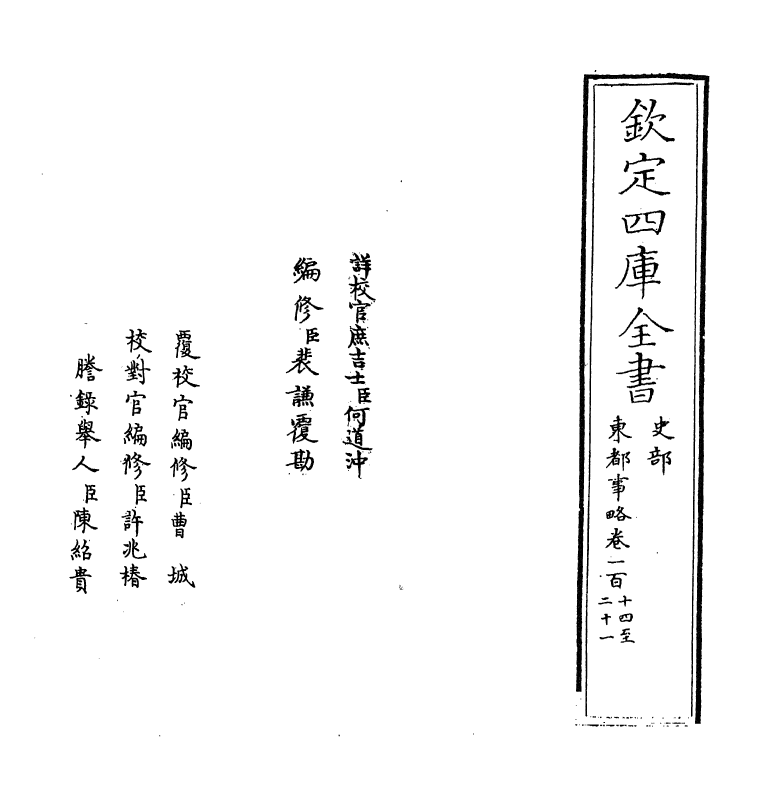 欽定四庫全書
史部
東都事略卷一百
十四至
二十一
詳校官庶吉士臣何道沖
編修臣裴謙覆勘
覆校官編修臣曹城
校對官編修臣許兆椿
謄錄舉人臣陳紹貴